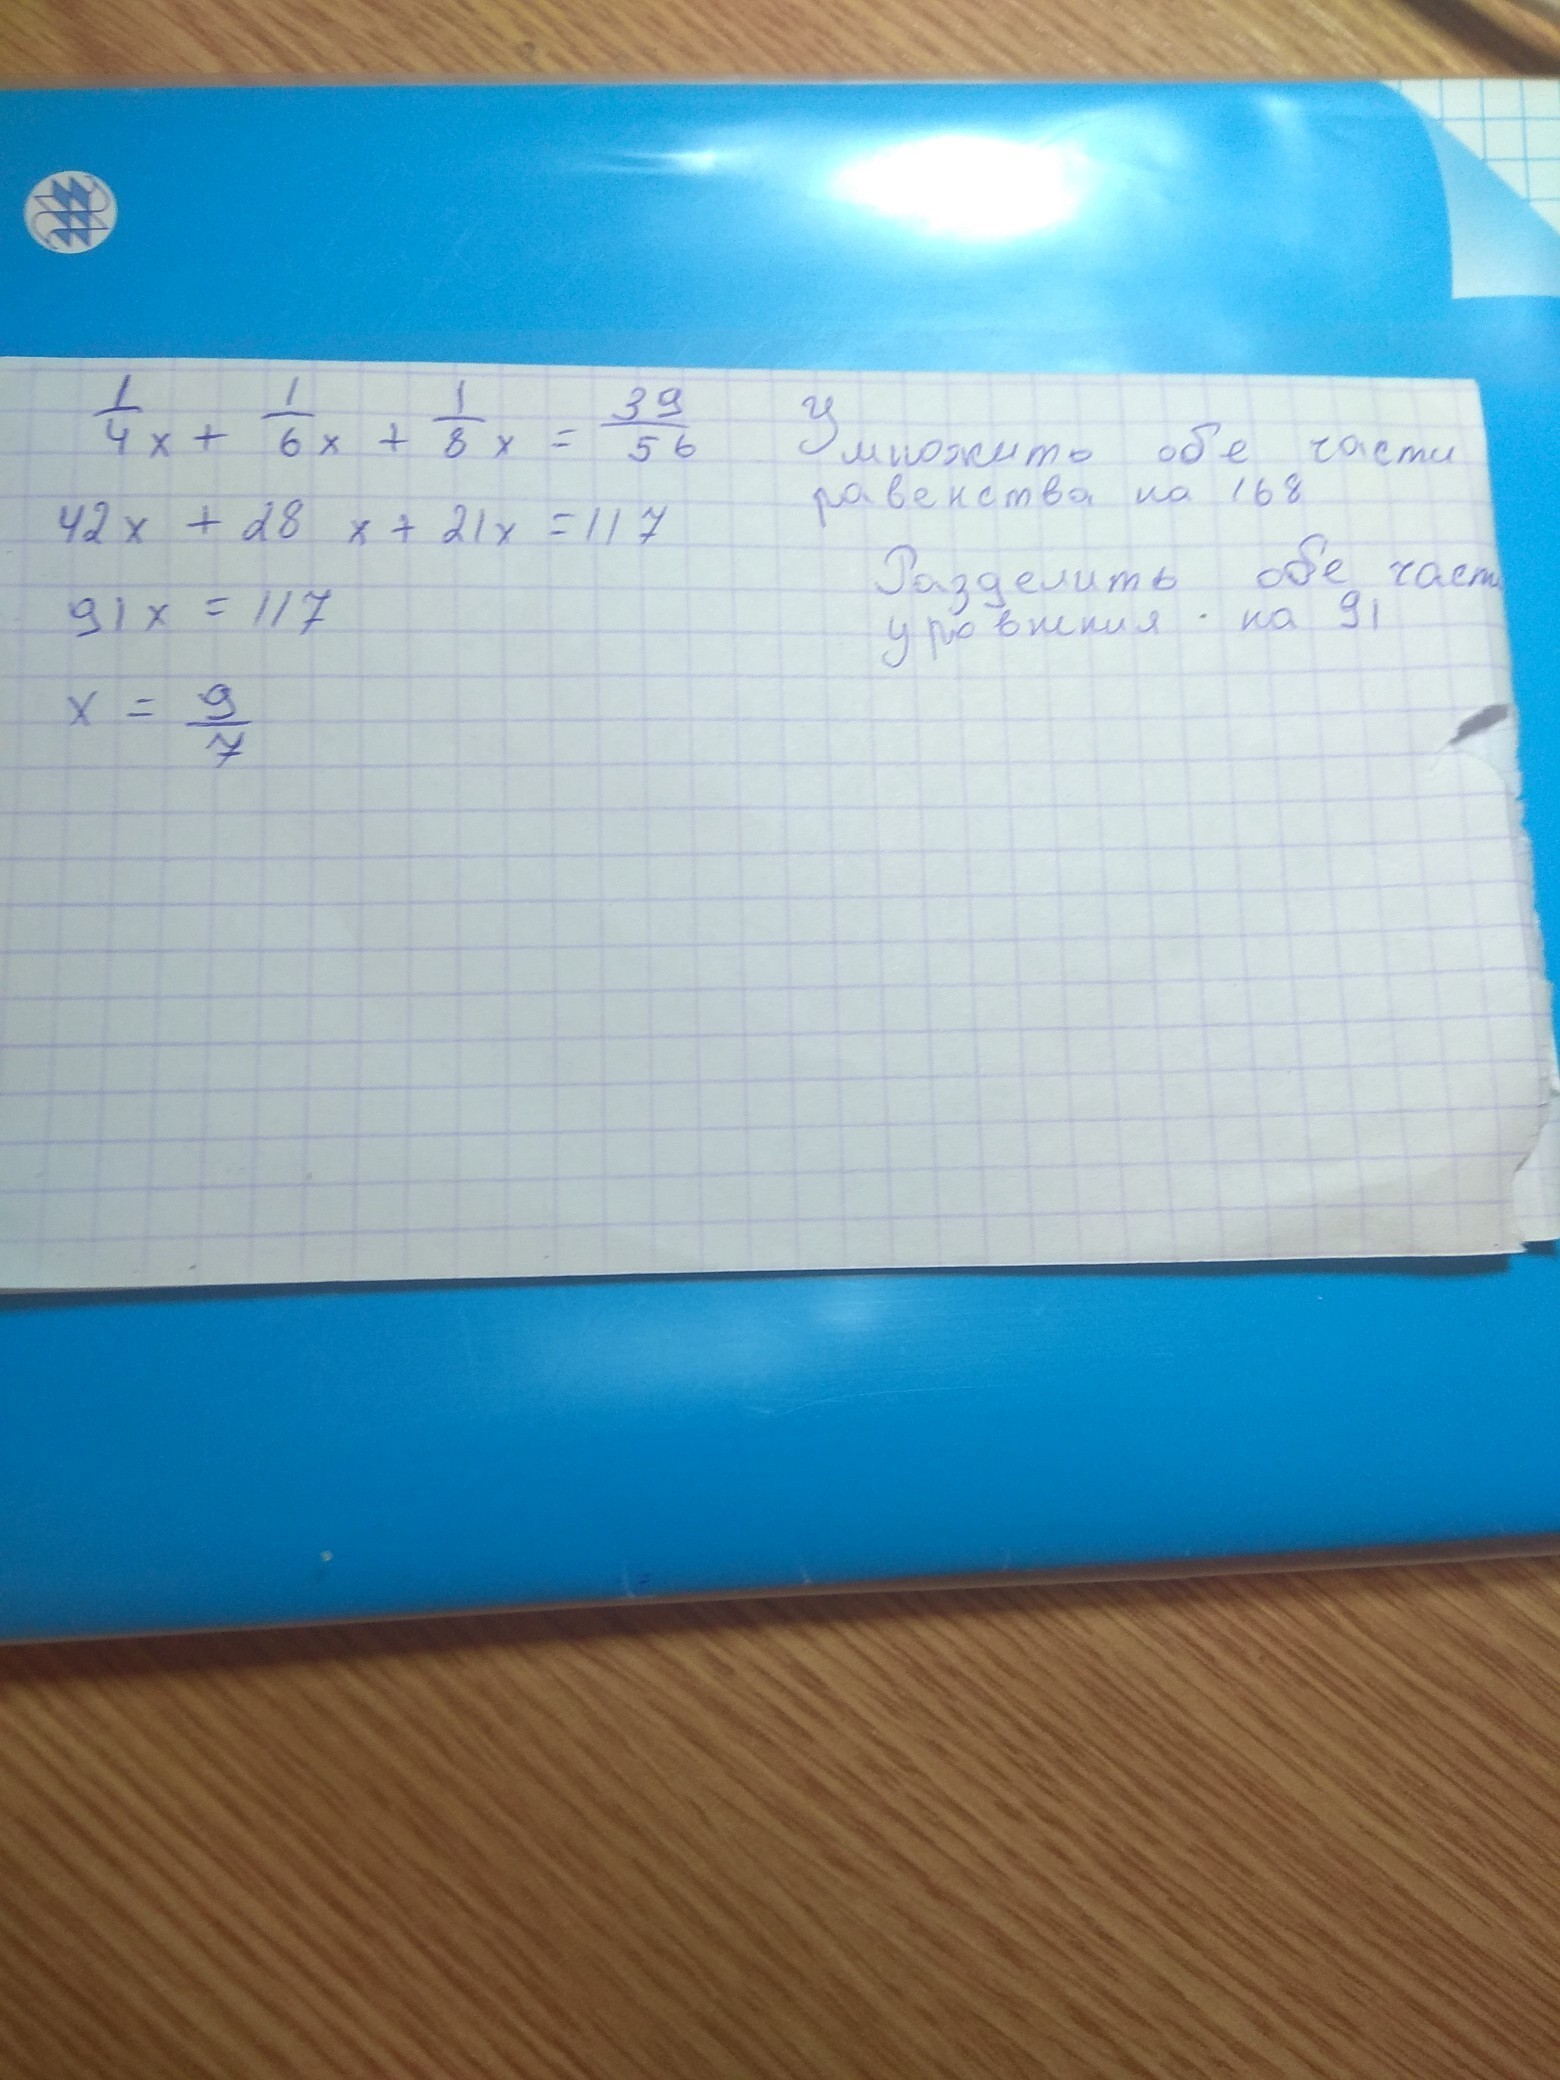 1/4 x + 1/6 x + 1/8 x = 39/56
Умножить обе части
равенства на 168
42x + 28 x + 21x = 117
Разделить обе част
уровнения · на 91
91x = 117
x = 9/7